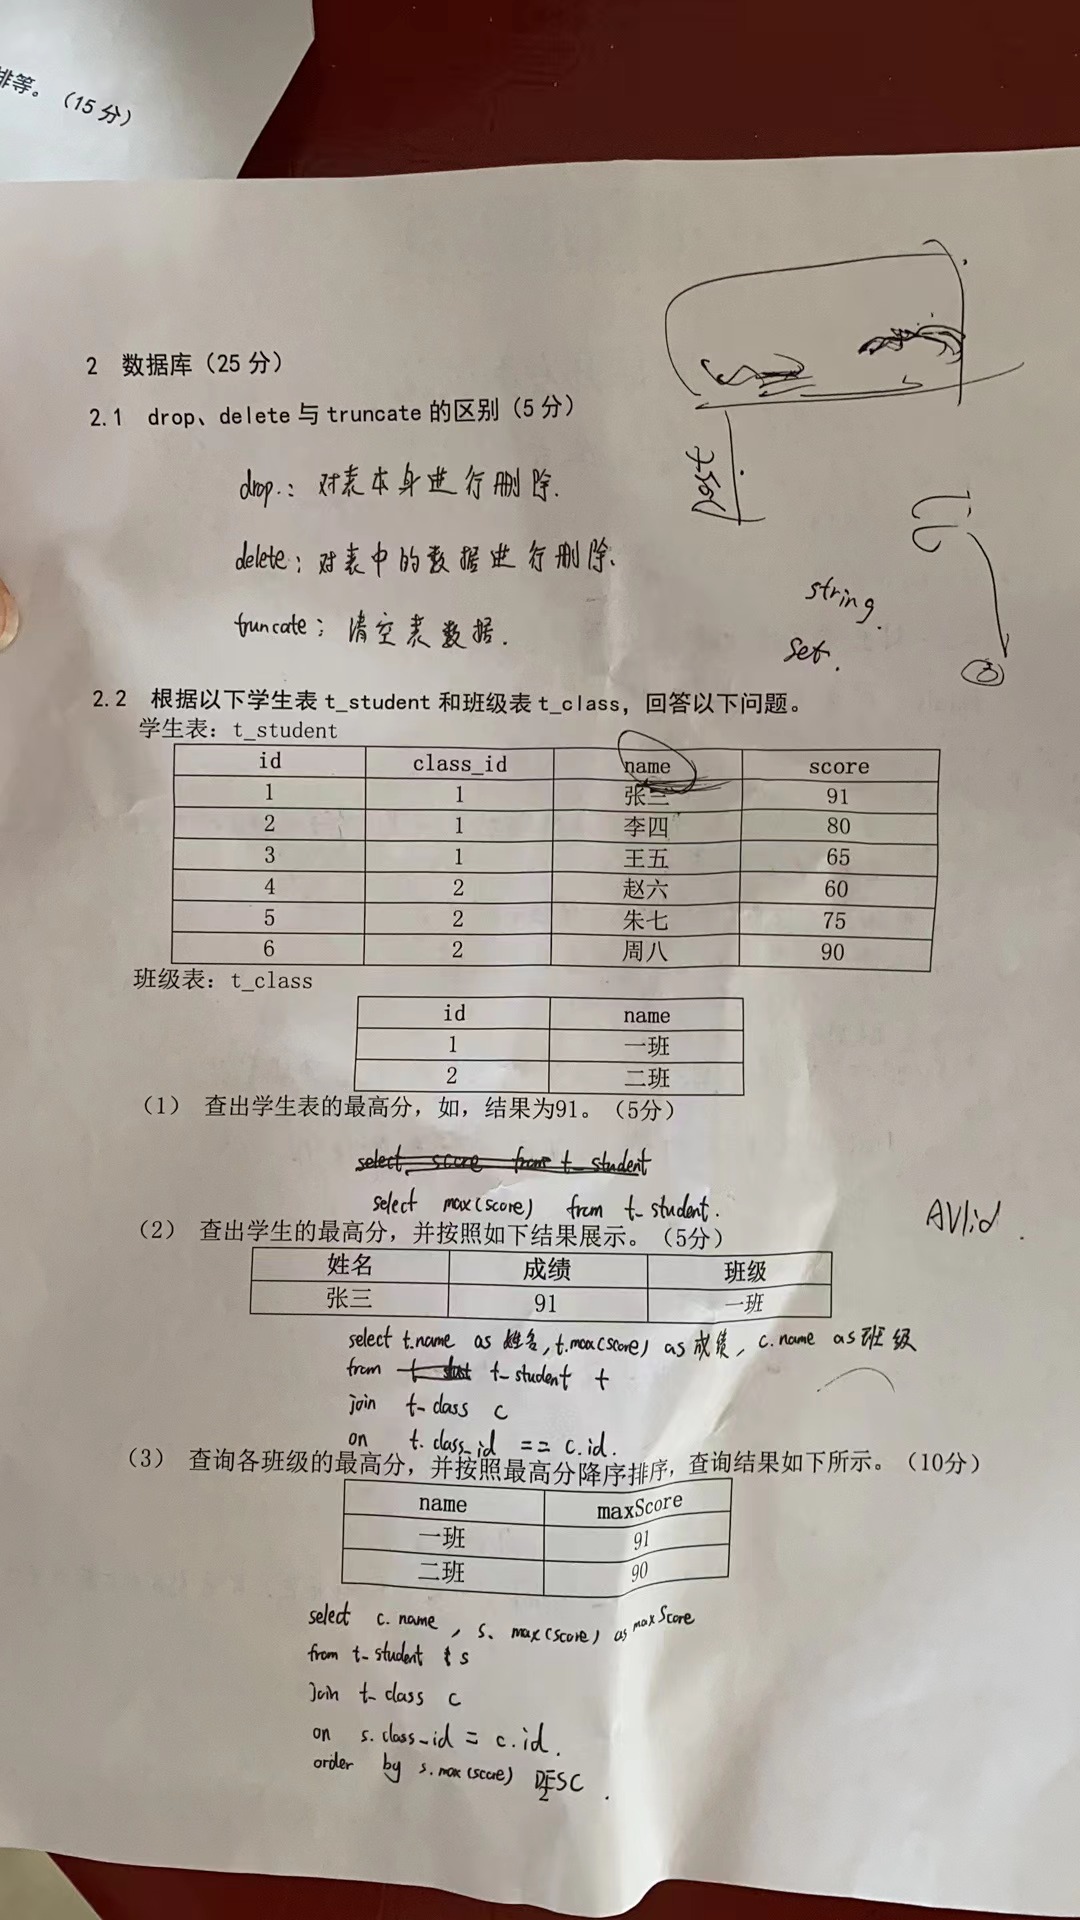 排等。（15分）
2 数据库（25分）
2.1 drop、delete与truncate的区别（5分）
drop.：对表本身进行删除.
delete：对表中的数据进行删除.
truncate：清空表数据.
string.
set.
2.2 根据以下学生表t_student和班级表t_class，回答以下问题。
学生表：t_student
id class_id name score
1 1 张三 91
2 1 李四 80
3 1 王五 65
4 2 赵六 60
5 2 朱七 75
6 2 周八 90
班级表：t_class
id name
1 一班
2 二班
（1） 查出学生表的最高分，如，结果为91。（5分）
select score from t_student
select max(score) from t_student.
（2） 查出学生的最高分，并按照如下结果展示。（5分）
姓名 成绩 班级
张三 91 一班
select t.name as 姓名, t.max(score) as 成绩, c.name as 班级
from t_student t
join t_class c
on t.class_id == c.id.
（3） 查询各班级的最高分，并按照最高分降序排序，查询结果如下所示。（10分）
name maxScore
一班 91
二班 90
select c.name , s. max(score) as maxScore
from t_student s
join t_class c
on s.class_id = c.id.
order by s.max(score) DESC .